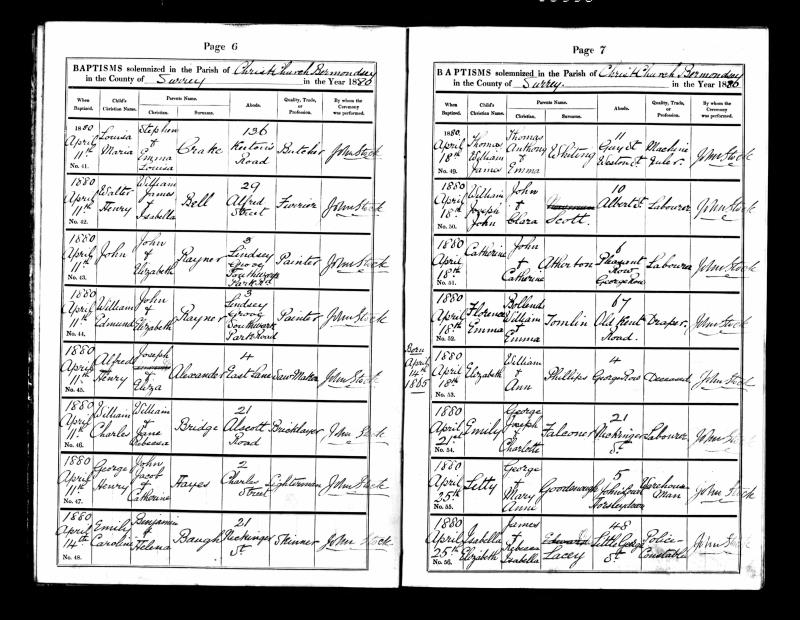 Page 6
BAPTISMS solemnized in the Parish of Christ Church Bermondsey
in the County of Surrey in the Year 1880
When Baptized. Child's Christian Name. Parents Name. Christian. Surname. Abode. Quality, Trade, or Profession. By whom the Ceremony was performed.
1880 April 11th No. 41. Louisa Maria Stephen & Emma Louisa Crake 136 Road Butcher John Stock
1880 April 11th No. 42. Walter Henry William James & Isabella Bell 29 Alfred Street Furrier John Stock
1880 April 11th No. 43. John John & Elizabeth Rayner 3 Lindsey Grove Southwark Park Rd Painter John Stock
1880 April 11th No. 44. William Edmund John & Elizabeth Rayner 3 Lindsey Grove Southwark Park Road Painter John Stock
1880 April 11th No. 45. Alfred Henry Joseph & Eliza Alexander 4 East Lane Saw Maker John Stock
1880 April 11th No. 46. William Charles William & Jane Rebecca Bridge 21 Alscott Road Bricklayer John Stock
1880 April 11th No. 47. George Henry John Jacob & Catherine Hayes 2 Charles Street Lighterman John Stock
1880 April 14th No. 48. Emily Caroline Benjamin & Helena Baugh 21 Neckinger St. Skinner John Stock
Page 7
BAPTISMS solemnized in the Parish of Christ Church Bermondsey
in the County of Surrey. in the Year 1880
When Baptized. Child's Christian Name. Parents Name. Christian. Surname. Abode. Quality, Trade, or Profession. By whom the Ceremony was performed.
1880. April 18th No. 49. Thomas William James Thomas Anthony & Emma Whiting 11 Guy St Weston St Machine Ruler. John Stock
1880 April 18th No. 50. William Joseph John John & Clara Scott. 10 Albert St. Labourer John Stock
1880 April 18th No. 51. Catherine John & Catherine Atherton 6 Pleasant Row George Row Labourer John Stock
1880 April 18th No. 52. Florence Emma William & Emma Tomlin 67 Old Kent Road. Draper. John Stock
Born April 14th 1865
1880 April 18th No. 53. Elizabeth William & Ann Phillips 4 George Row Deceased John Stock
1880 April 21st No. 54. Emily George Joseph & Charlotte Falconer 21 Neckinger St. Labourer John Stock
1880 April 25th No. 55. Letty George & Mary Anne Goodenough 5 Johns Court Horsleydown Warehouse Man John Stock
1880 April 25th No. 56. Isabella Elizabeth James & Rebecca Isabella Edward Lacey 48 Little George St Police Constable John Stock